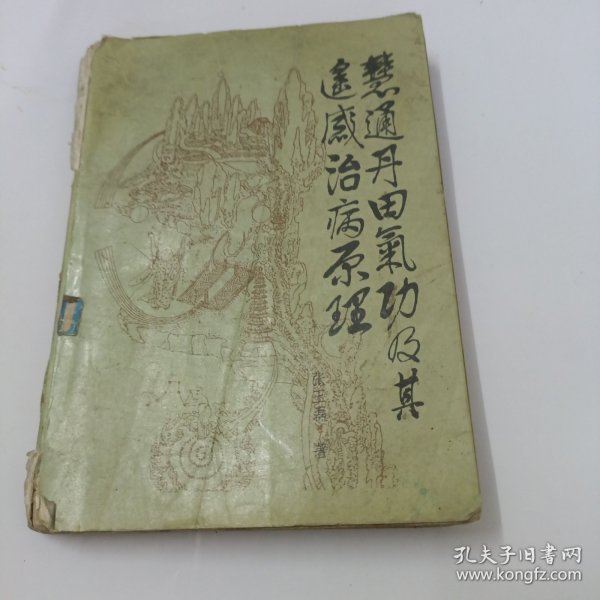 慧通丹田氣功及其
遙感治病原理
張玉磊 著
孔夫子旧书网
www.kongfz.com